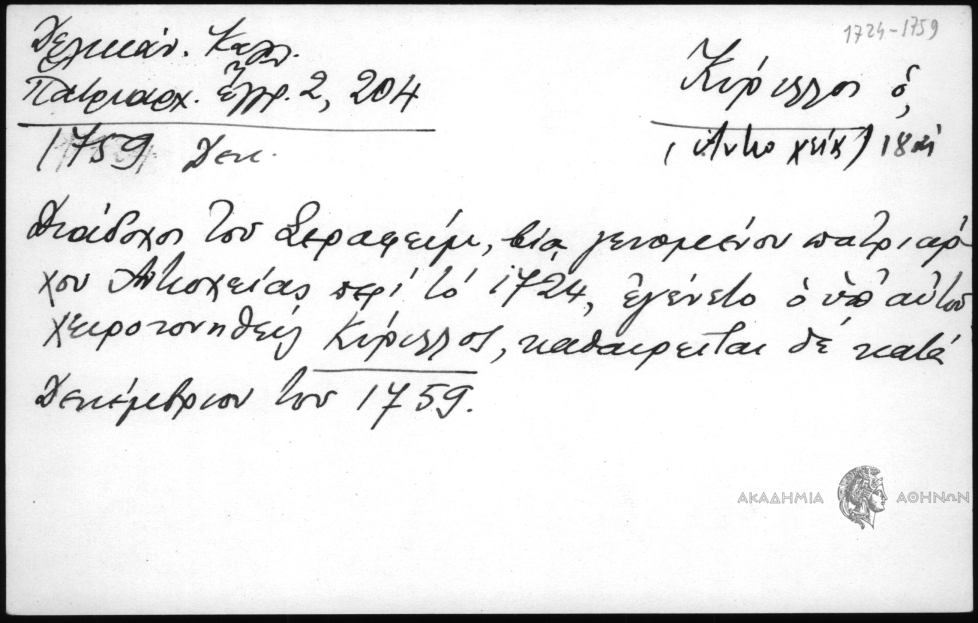 1724-1759
Δελικάν. Καλλ.
Πατριαρχ. ἔγγρ. 2, 204
1759 Δεκ.
Κύριλλος ὁ,
(Ἀντιοχείας) 18 αἰ
Διάδοχος τοῦ Σεραφείμ, βίᾳ γενομένου πατριάρ
χου Ἀντιοχείας περὶ τὸ 1724, ἐγένετο ὁ ὑπ' αὐτοῦ
χειροτονηθείς Κύριλλος, καθαιρεῖται δέ κατά
Δεκέμβριον τοῦ 1759.
ΑΚΑΔΗΜΙΑ ΑΘΗΝΩΝ